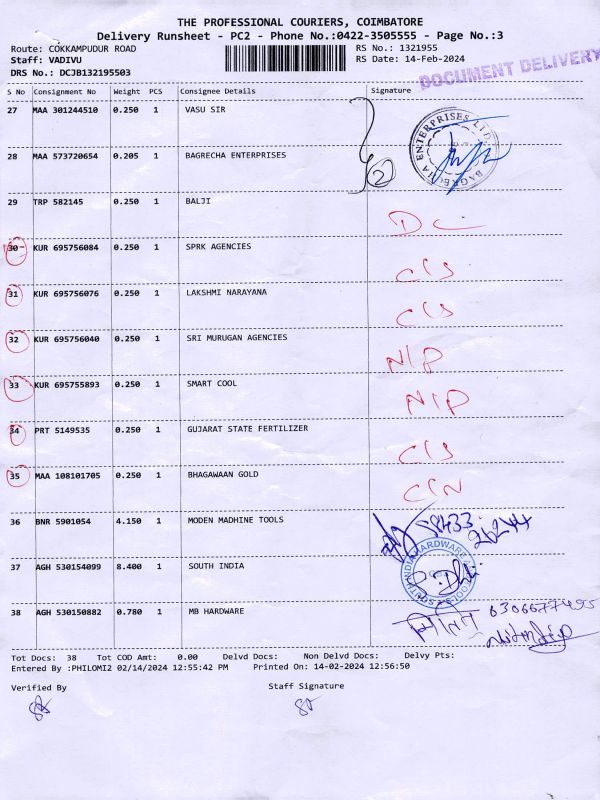 THE PROFESSIONAL COURIERS, COIMBATORE
Delivery Runsheet - PC2 - Phone No.:0422-3505555 - Page No.:3
Route: COKKAMPUDUR ROAD RS No.: 1321955
Staff: VADIVU RS Date: 14-Feb-2024
DRS No.: DCJB132195503
DOCUMENT DELIVERY
S No Consignment No Weight PCS Consignee Details Signature
27 MAA 301244510 0.250 1 VASU SIR
28 MAA 573720654 0.205 1 BAGRECHA ENTERPRISES 2
29 TRP 582145 0.250 1 BALJI
30 KUR 695756084 0.250 1 SPRK AGENCIES C/S
31 KUR 695756076 0.250 1 LAKSHMI NARAYANA C/S
32 KUR 695756040 0.250 1 SRI MURUGAN AGENCIES N/P
33 KUR 695755893 0.250 1 SMART COOL N/P
34 PRT 5149535 0.250 1 GUJARAT STATE FERTILIZER C/S
35 MAA 108101705 0.250 1 BHAGAWAAN GOLD C/N
36 BNR 5901054 4.150 1 MODEN MADHINE TOOLS
37 AGH 530154099 8.400 1 SOUTH INDIA
38 AGH 530150882 0.780 1 MB HARDWARE
Tot Docs: 38 Tot COD Amt: 0.00 Delvd Docs: Non Delvd Docs: Delvy Pts:
Entered By :PHILOMI2 02/14/2024 12:55:42 PM Printed On: 14-02-2024 12:56:50
Verified By Staff Signature